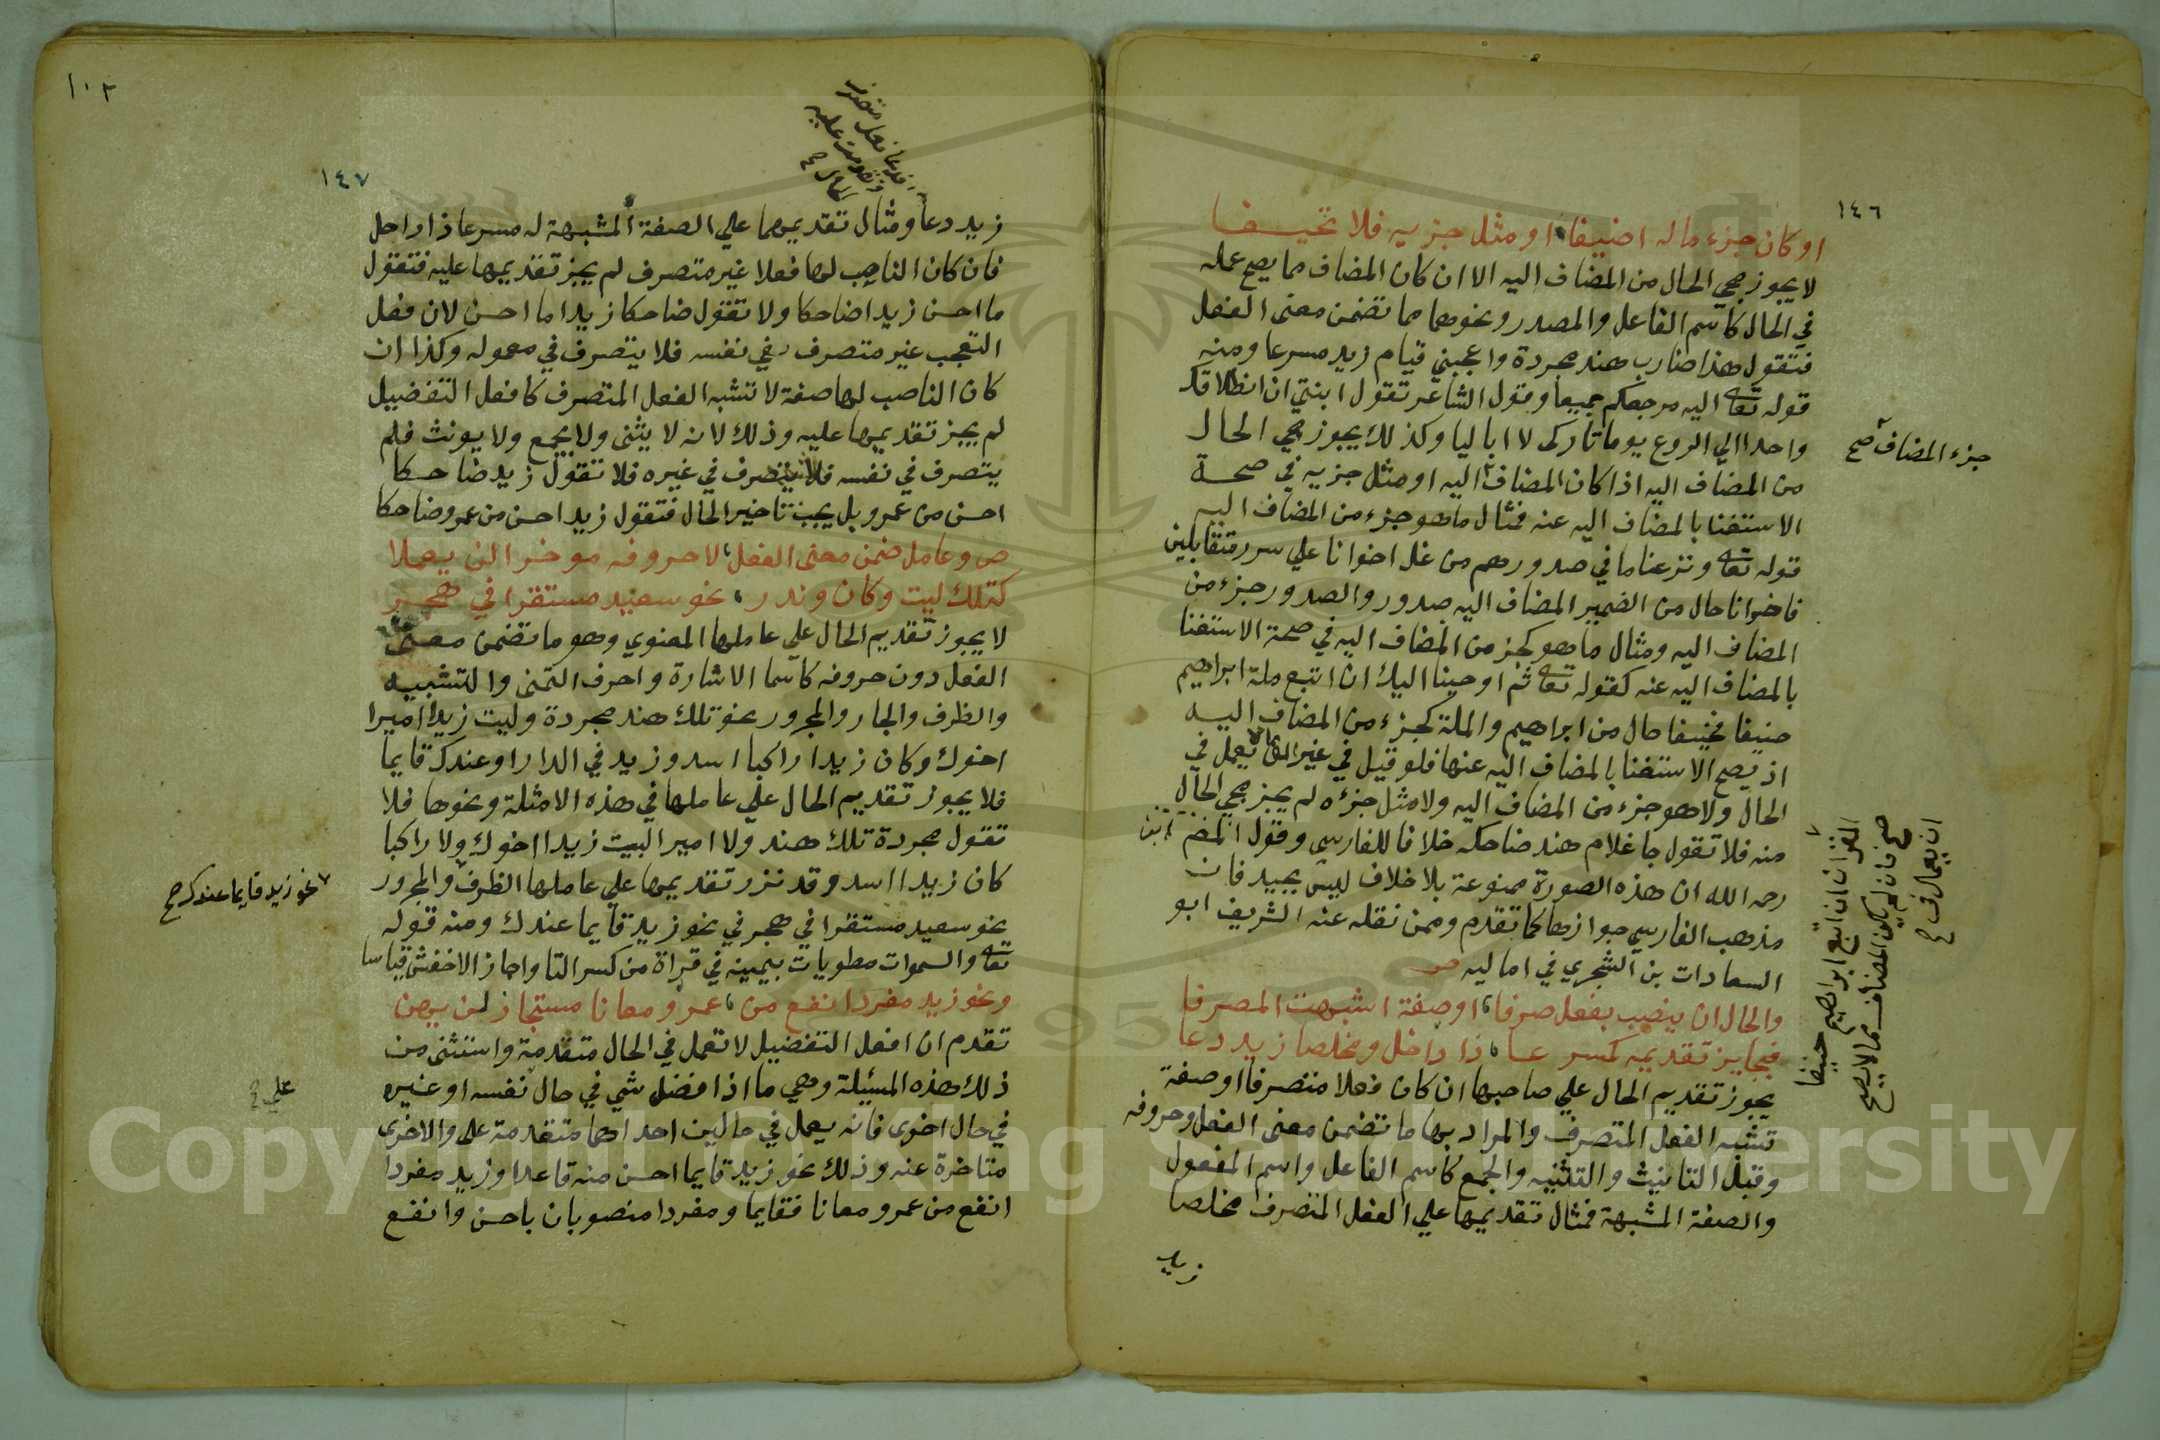 ١٤٦
او كان جزء ما له اضيفا او مثل جزيه فلا تحيفا
لا يجوز مجي الحال من المضاف اليه الا ان كان المضاف مما يصح عمله
في الحال كاسم الفاعل والمصدر ونحوهما مما تضمن معنى الفعل
فتقول هذا ضارب هند مجردة واعجبني قيام زيد مسرعا ومنه
قوله تعا اليه مرجعكم جميعا وقول الشاعر تقول ابنتي ان انطلاقك
واحدا الي الروع يوما تاركى لا ابا ليا وكذلك يجوز مجي الحال
جزء المضاف صح
من المضاف اليه اذا كان المضاف اليه او مثل جزيه في صحة
الاستغنا بالمضاف اليه عنه فمثال ما هو جزء من المضاف اليه
قوله تعا ونزعنا ما في صدورهم من غل اخوانا علي سرر متقابلين
فاخوانا حال من الضمير المضاف اليه صدور والصدور جزء من
المضاف اليه ومثال ما هو كجزء من المضاف اليه في صحة الاستغنا
بالمضاف اليه عنه كقوله تعا ثم اوحينا اليك ان اتبع ملة ابراهيم
حنيفا فحنيفا حال من ابراهيم والملة كجزء من المضاف اليه
اذ يصح الاستغنا بالمضاف اليه عنها فلو قيل في غير القران ان اتبع ابراهيم حنيفا صح فان لم يكن المضاف مما لا يصح ان يعمل في
الحال ولا هو جزء من المضاف اليه ولا مثل جزؤه لم يجز مجي الحال
منه فلا تقول جا غلام هند ضاحكه خلافا للفارسي وقول ابن المصم
رحمه الله ان هذه الصورة ممنوعة بلا خلاف ليس بجيد فان
مذهب الفارسي جوازها كما تقدم وممن نقله عنه الشريف ابو
السعادات بن الشجري في اماليه ص
والحال ان ينصب بفعل صرفا او صفة اشبهت المصرفا
فجايز تقديمه كمسرعا ذا راحل ومخلصا زيد دعا
يجوز تقديم الحال علي صاحبها ان كان فعلا متصرفا او صفة
تشبه الفعل المتصرف والمراد بها ما تضمن معنى الفعل وحروفه
وقبل التانيث والتثنيه والجمع كاسم الفاعل واسم المفعول
والصفة المشبهة فمثال تقديمها علي الفعل المتصرف مخلصا
زيد
١٠٣
١٤٧
زيد دعا ومثال تقديمها علي الصفة المشبهة له مسرعا ذا راحل
فان كان الناصب لها فعلا غير متصرف لم يجز تقديمها عليه فتقول
ما احسن زيدا ضاحكا ولا تقول ضاحكا زيدا ما احسن لان فعل
التعجب غير متصرف في نفسه فلا يتصرف في معموله وكذا ان
كان الناصب لها صفة لا تشبه الفعل المتصرف كافعل التفضيل
لم يجز تقديمها عليه وذلك لانه لا يثنى ولا يجمع ولا يونث فلم
يتصرف في نفسه فلا يتصرف في غيره فلا تقول زيد ضاحكا
احسن من عمرو بل يجب تاخير الحال فتقول زيد احسن من عمرو ضاحكا
ص وعامل ضمن معنى الفعل لا حروفه موخرا لن يعملا
كتلك ليت وكان وندر نحو سعيد مستقرا في هجر
لا يجوز تقديم الحال علي عاملها المعنوي وهو ما تضمن معنى
الفعل دون حروفه كاسما الاشارة واحرف التمني والتشبيه
والظرف والجار والمجرور نحو تلك هند مجردة وليت زيدا اميرا
اخوك وكان زيدا راكبا اسد وزيد في الدار او عندك قايما
فلا يجوز تقديم الحال علي عاملها في هذه الامثلة ونحوها فلا
تقول مجردة تلك هند ولا اميرا ليت زيدا اخوك ولا راكبا
كان زيدا اسد وقد نزر تقديمها علي عاملها الظرف والمجرور
نحو زيد قايما عندك صح
نحو سعيد مستقرا في هجر في نحو زيد قايما عندك ومنه قوله
تعا والسموات مطويات بيمينه في قراة من كسر التا واجاز الاخفش قياسا
ونحو زيد مفردا انفع من عمرو معانا مستجاز لن يهن
تقدم ان افعل التفضيل لا تعمل في الحال متقدمة واستثنى من
ذلك هذه المسئلة وهي ما اذا فضل شي في حال نفسه او غيره
علي
في حال اخرى فانه يعمل في حالين احداهما متقدمة عليه والاخرى
متاخرة عنه وذلك نحو زيد قايما احسن منه قاعدا وزيد مفردا
انفع من عمرو معانا فقايما ومفردا منصوبان باحسن وانفع